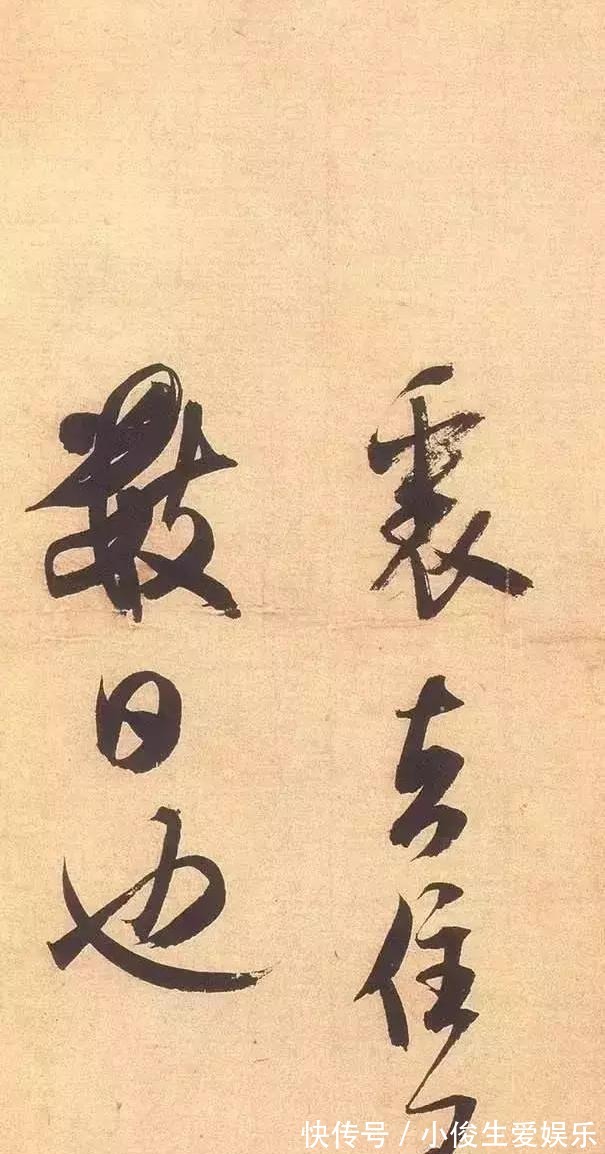 去住
數日也
快传号/小俊生爱娱乐